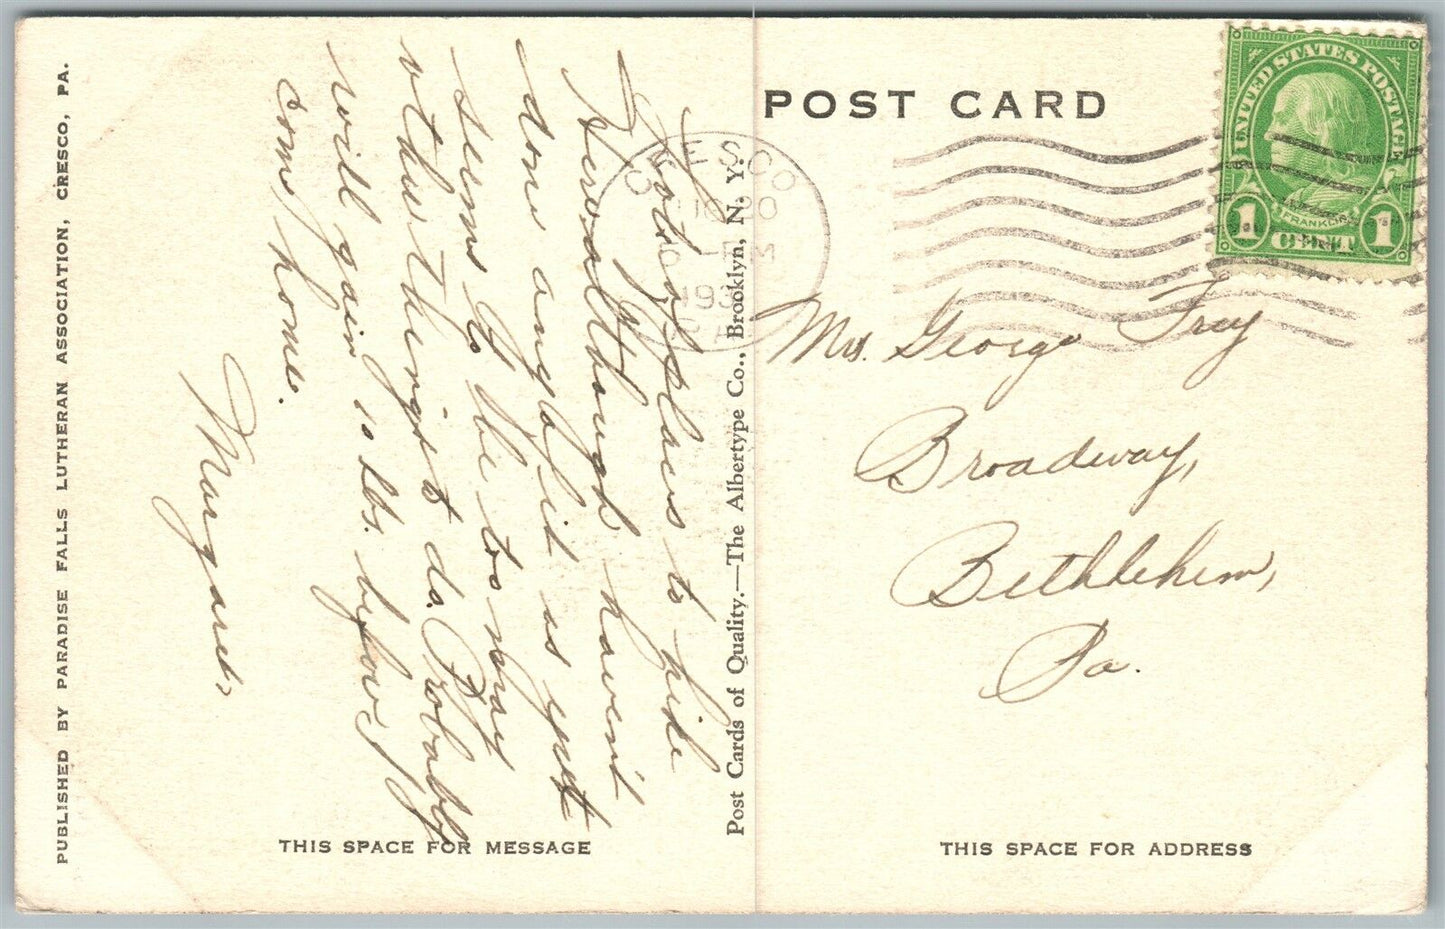 PUBLISHED BY PARADISE FALLS LUTHERAN ASSOCIATION, CRESCO, PA.
Lots of places to hike
here although havent
done any of it as yet
seems to be too many
other things to do. Probably
will gain 10 lbs. before I
come home.
Margaret
THIS SPACE FOR MESSAGE
Post Cards of Quality.—The Albertype Co., Brooklyn, N. Y.
POST CARD
CRESCO
PM
193
PA
UNITED STATES POSTAGE
FRANKLIN
1 CENT 1
Mrs. George Frey
Broadway,
Bethlehem,
Pa.
THIS SPACE FOR ADDRESS